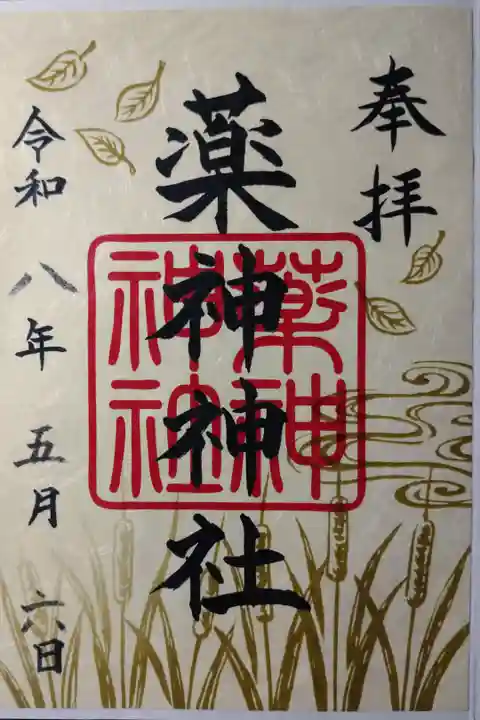 奉拝
薬神神社
薬神
神社
令和八年五月六日